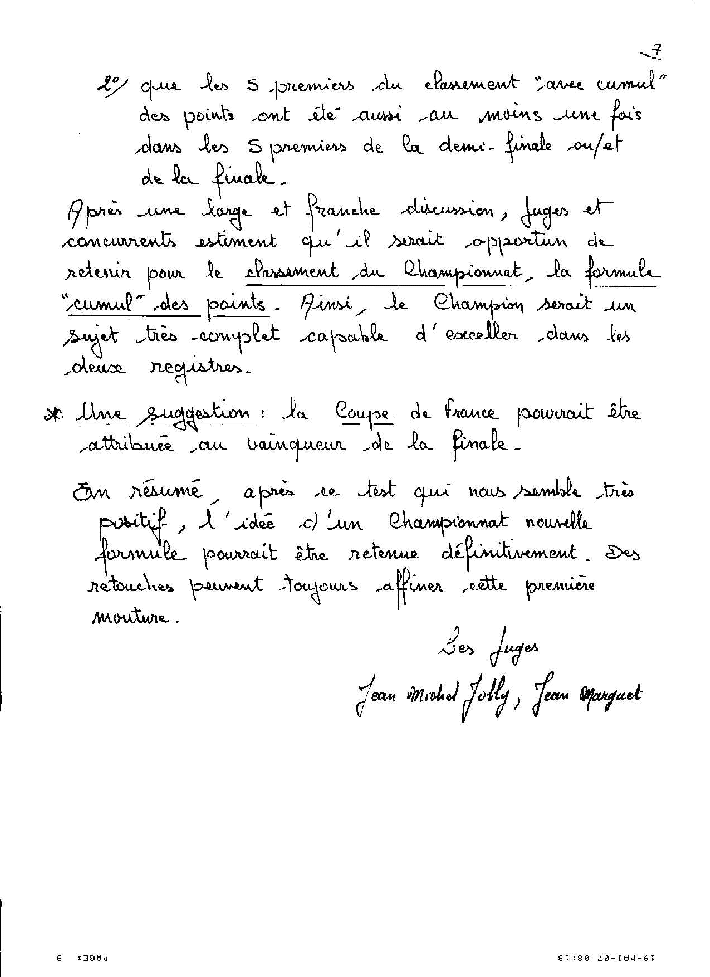 7
2°/ que les 5 premiers du classement "avec cumul"
des points ont été aussi au moins une fois
dans les 5 premiers de la demi-finale ou/et
de la finale.
Après une large et franche discussion, Juges et
concurrents estiment qu'il serait opportun de
retenir pour le classement du Championnat, la formule
"cumul" des points. Ainsi, le Champion serait un
sujet très complet capable d'exceller dans les
deux registres.
* Une suggestion : la Coupe de France pourrait être
attribuée au vainqueur de la finale.
En résumé, après ce test qui nous semble très
positif, l'idée d'un Championnat nouvelle
formule pourrait être retenue définitivement. Des
retouches peuvent toujours affiner cette première
mouture.
Les Juges
Jean Michel Jolly, Jean Marguet